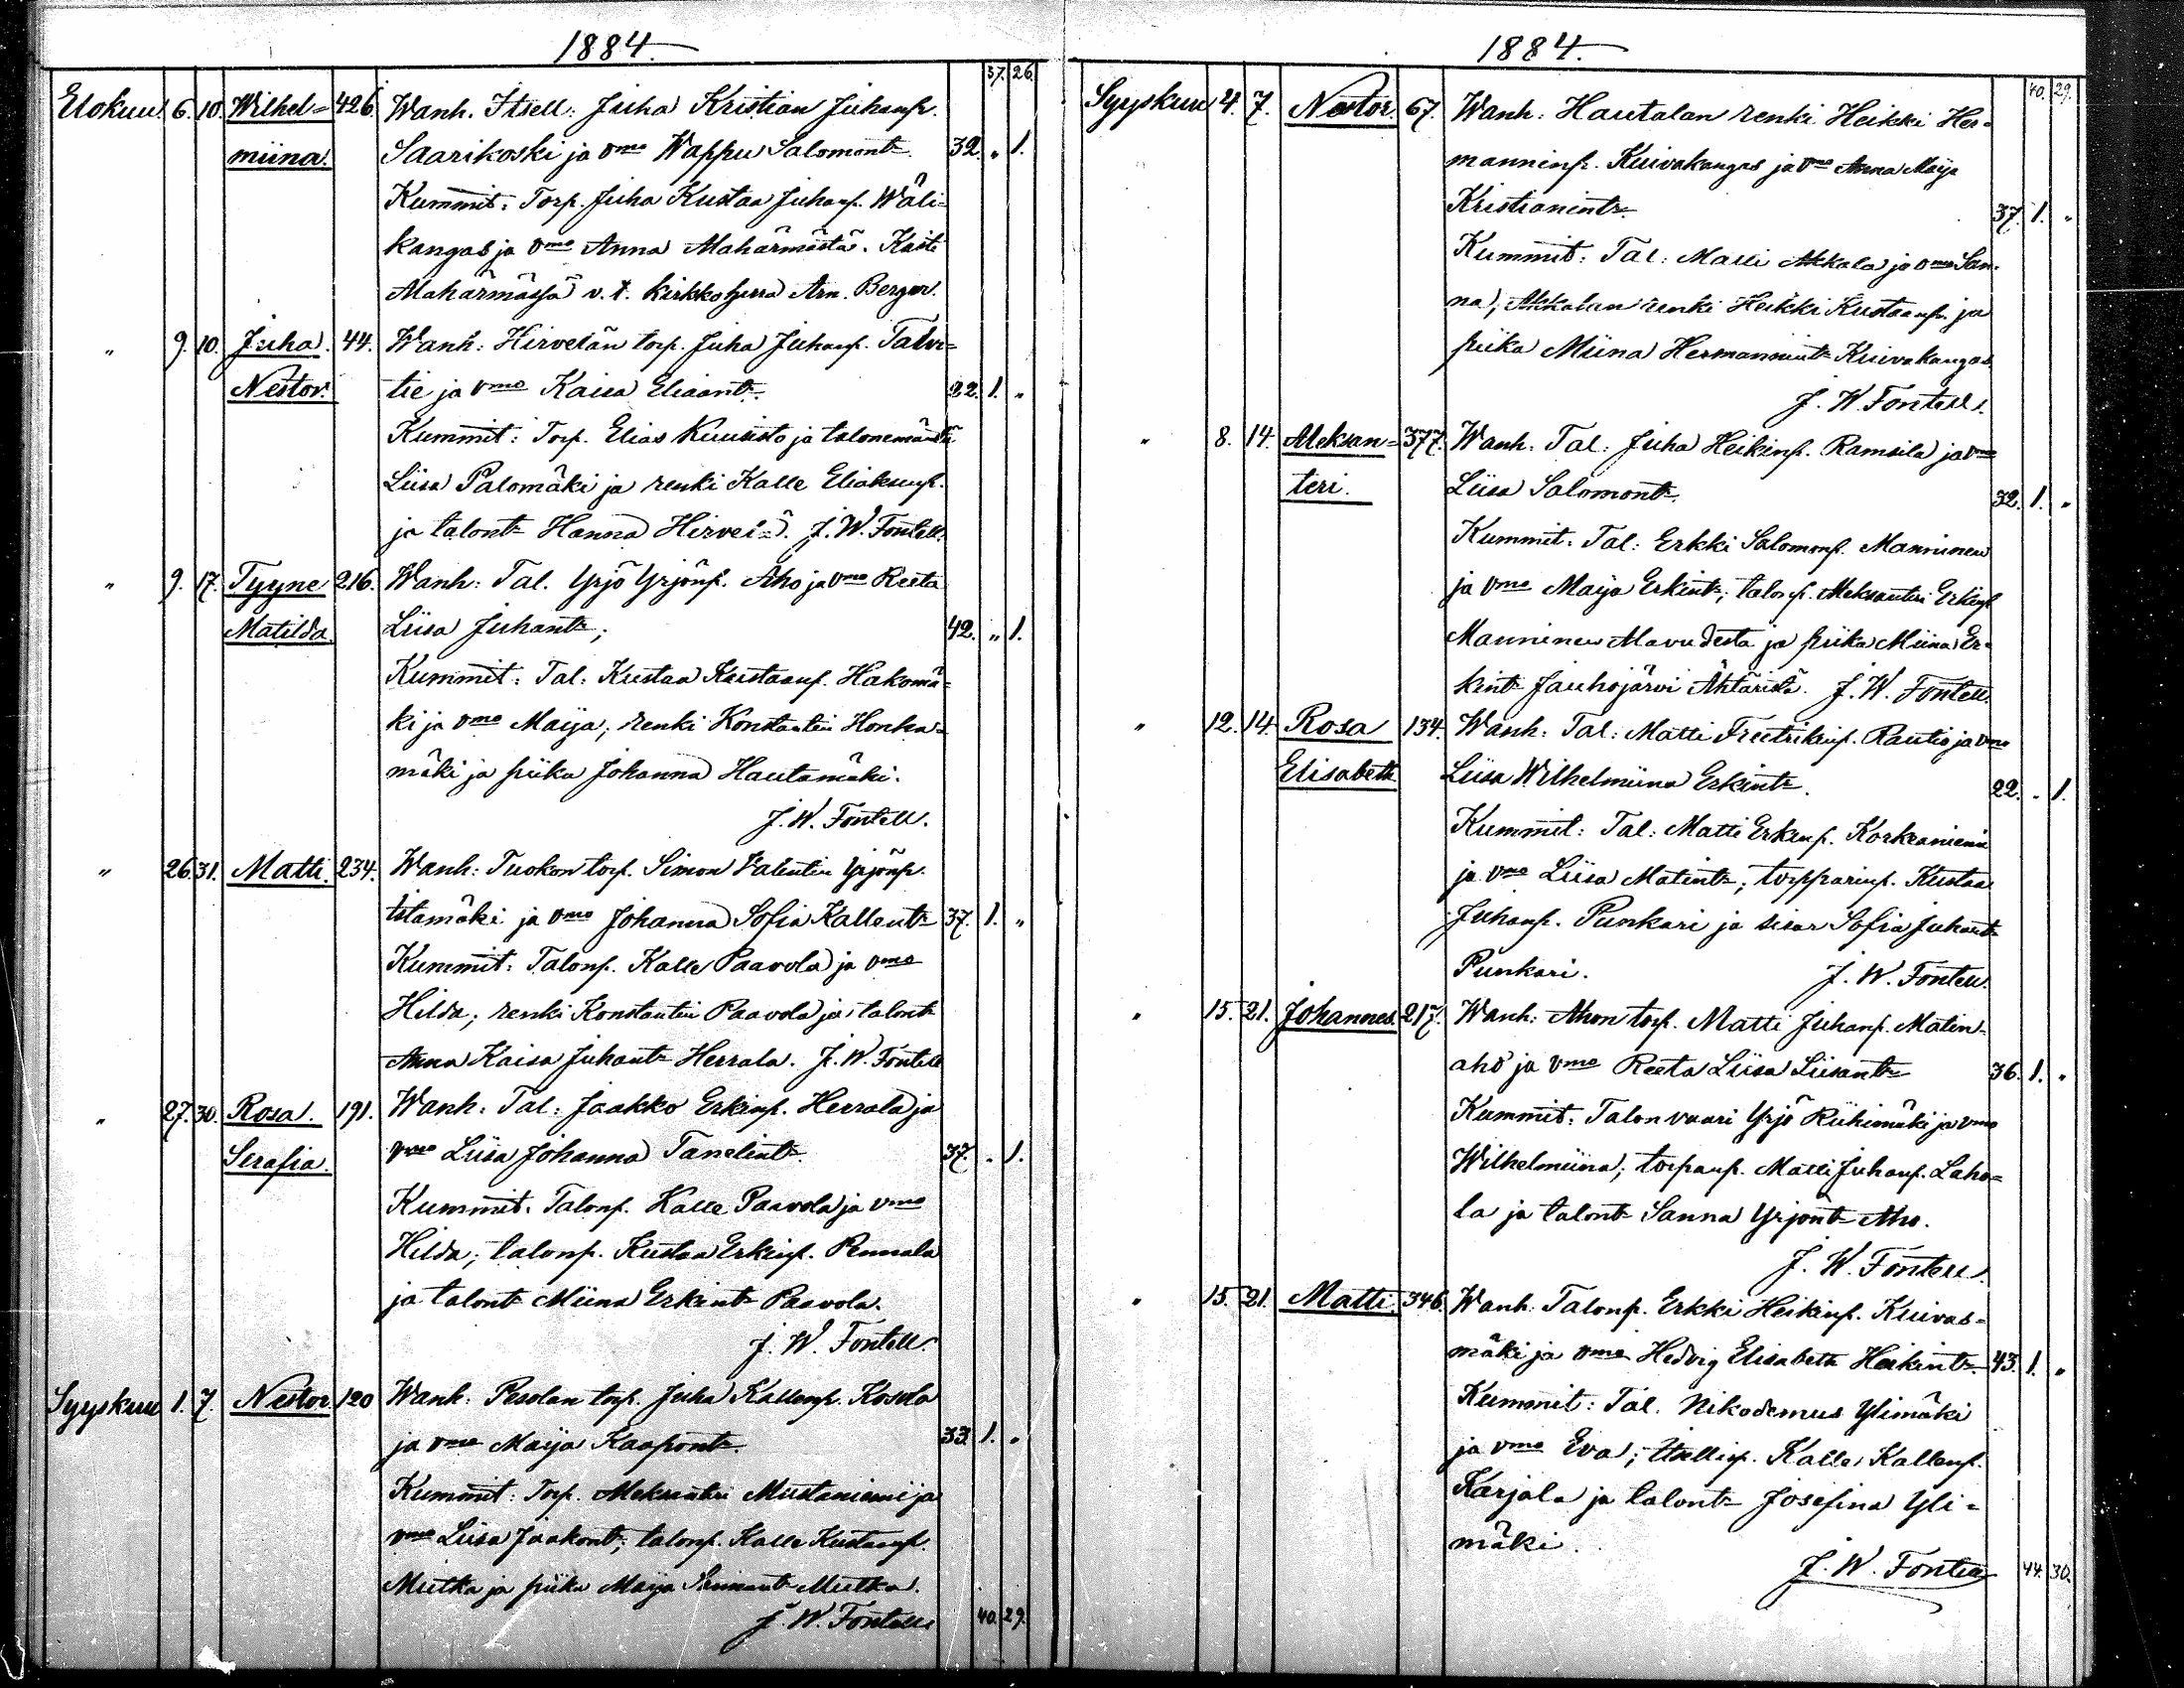 1884.
37. 26.
Elokuu 6. 10. Wilhel= 426. Wanh. Itsell: Juha Kristian Juhanp.
miina. Saarikoski ja vmo Wappu Salomont. 32. " 1.
Kummit: Torp. Juha Kustaa Juhanp. Wäli-
kangas ja vmo Anna Mahärmästä. Kasti
Alahärmässä v. t. kirkkoherra Arn. Berger.
" 9. 10. Juha 44. Wanh: Hirvelän torp. Juha Juhanp. Talvi=
Nestor. tie ja vmo Kaisa Eliaant. 22. 1. "
Kummit: Torp. Elias Kuusisto ja talonemäntä
Liisa Palomäki ja renki Kalle Eliaksenp.
ja talont Hanna Hirvelä. J. W. Fontell.
" 9. 17. Tyyne 216. Wanh: Tal. Yrjö Yrjönp. Aho ja vmo Reeta
Matilda. Liisa Juhant; 42. " 1.
Kummit: Tal: Kustaa Kustaanp. Hakomä=
ki ja vmo Maija; renki Konstantin Honka=
mäki ja piika Johanna Hautamäki.
J. W. Fontell.
" 26. 31. Matti. 234. Wanh: Tuokon torp. Simon Valentin Yrjönp.
Istamäki ja vmo Johanna Sofia Kallent 37. 1. "
Kummit: Talonp. Kalle Paavola ja vmo
Hilda; renki Konstantin Paavola ja talont
Anna Kaisa Juhant Herrala. J. W. Fontell
" 27. 30. Rosa. 191. Wanh: Tal: Jaakko Erkinp. Herrala ja
Serafia. vmo Liisa Johanna Tanelint. 37. " 1.
Kummit: Talonp. Kalle Paavola ja vmo
Hilda; talonp. Kustaa Erkinp. Pennala
ja talont Miina Erkint Paavola.
J. W. Fontell.
Syyskuu 1. 7. Nestor. 120 Wanh: Pesolan torp. Juha Kallenp. Koskla
ja vmo Maija Kaapont. 33. 1. "
Kummit: Torp. Aleksanteri Mustaniemi ja
vmo Liisa Jaakont; talonp. Kalle Kustaanp.
Mutka ja piika Maija Mutka.
J. W. Fontell 40. 29.
1884.
40. 29.
Syyskuu 4. 7. Nestor. 67. Wanh: Hautalan renki Heikki Her=
manninp. Kuivakangas ja vmo Anna Maija
Kristianint 37. 1. "
Kummit: Tal: Matti Akkala ja vmo San=
na; Akkalan renki Heikki Kustaanp. ja
piika Miina Hermannint Kuivakangas.
J. W. Fontell.
" 8. 14. Aleksan= 377. Wanh: Tal: Juha Heikinp. Ramsila ja vmo
teri. Liisa Salomont. 32. 1. "
Kummit: Tal: Erkki Salomonp. Manninen
ja vmo Maija Erkint; talonp. Aleksanteri Erkinp
Manninen Alavudesta ja piika Miina Er=
kint Jauhojärvi Ähtäristä. J. W. Fontell.
" 12. 14. Rosa 134. Wanh: Tal: Matti Freetrikinp. Rautio ja vmo
Elisabeth Liisa Wilhelmiina Erkint. 22. " 1.
Kummit: Tal: Matti Erkinp. Korkeaniemi
ja vmo Liisa Matint; torpparinp. Kustaa
Juhanp. Punkari ja sisar Sofia Juhant
Punkari. J. W. Fontell.
" 15. 21. Johannes. 217. Wanh: Ahon torp. Matti Juhanp. Matin=
aho ja vmo Reeta Liisa Liisant 36. 1. "
Kummit: Talon vaari Yrjö Riihimäki ja vmo
Wilhelmiina; torpanp. Matti Juhanp. Laho=
la ja talont Sanna Yrjönt Aho.
J. W. Fontell.
" 15. 21. Matti. 346. Wanh. Talonp. Erkki Heikinp. Kuivas=
mäki ja vmo Hedvig Elisabeth Heikint 43. 1. "
Kummit: Tal. Nikodemus Ylimäki
ja vmo Eva; Itsellisp. Kalle Kallenp.
Karjala ja talont Josefina Yli=
mäki.
J. W. Fontell 44. 30.